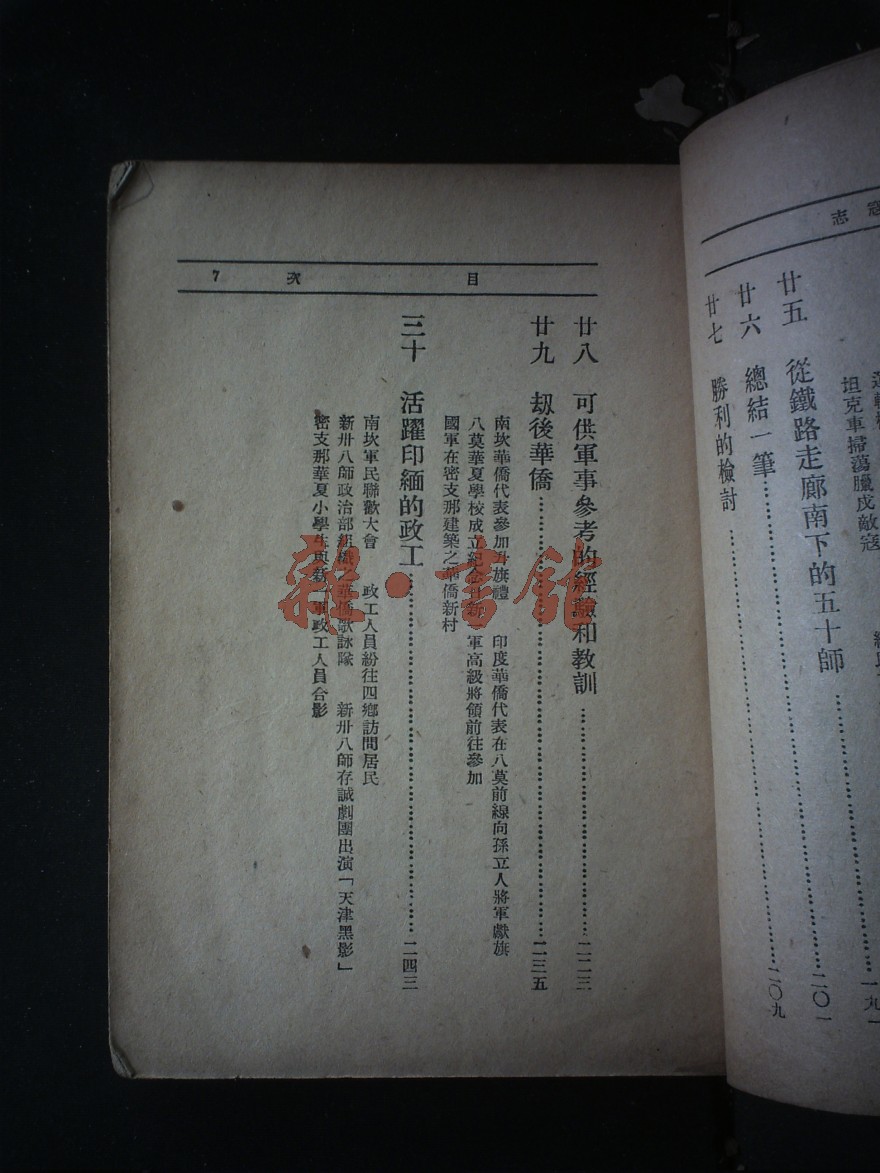 寇志
坦克車掃蕩臘戍敵寇
廿五 從鐵路走廊南下的五十師……二〇一
廿六 總結一筆……二〇九
廿七 勝利的檢討……
目次 7
廿八 可供軍事參考的經驗和教訓……二二三
廿九 刼後華僑……二三五
南坎華僑代表參加升旗禮 印度華僑代表在八莫前線向孫立人將軍獻旗
八莫華夏學校成立紀念日新一軍高級將領前往參加
國軍在密支那建築之華僑新村
三十 活躍印緬的政工……二四三
南坎軍民聯歡大會 政工人員紛往四鄉訪問居民
新卅八師政治部組織之華僑歌詠隊 新卅八師存誠劇團出演「天津黑影」
密支那華夏小學生與新一軍政工人員合影
雜·書館